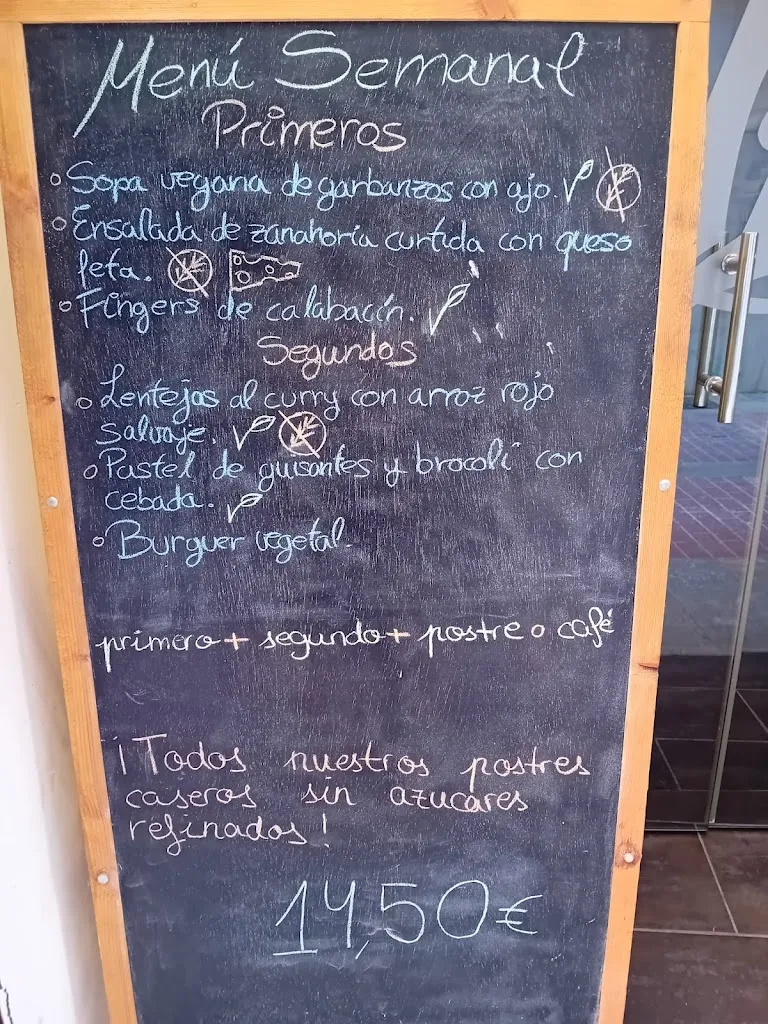 Menú Semanal
Primeros
Sopa vegana de garbanzos con ajo.
Ensallada de zanahoria curtida con queso
feta.
Fingers de calabacín.
Segundos
Lentejas al curry con arroz rojo
salvaje.
Pastel de guisantes y brocoli con
cebada.
Burguer vegetal.
primero + segundo + postre o café
¡Todos nuestros postres
caseros sin azucares
refinados!
14,50€